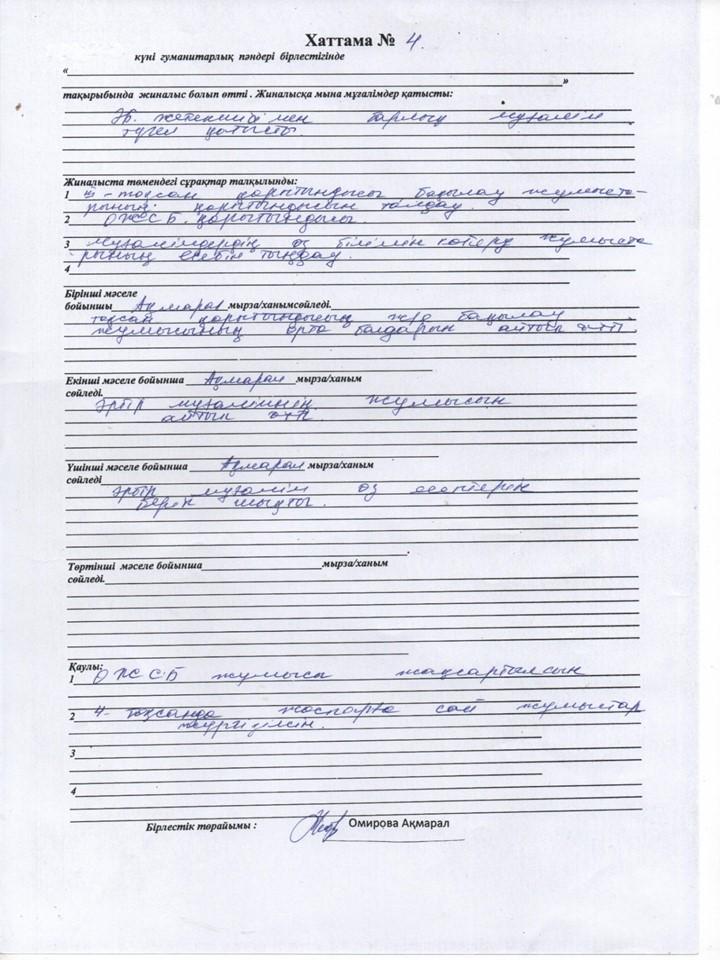 Хаттама № 4.
күні гуманитарлық пәндері бірлестігінде
« »
тақырыбында жиналыс болып өтті . Жиналысқа мына мұғалімдер қатысты:
Әб. жетекшісі мен барлық мұғалім
түгел қатысты
Жиналыста төмендегі сұрақтар талқыланды:
1 ІІІ - тоқсан қорытындысы бақылау жұмыста-
рының қорытындысын талдау.
2 ОЖСБ қорытындысы.
3 Мұғалімдердің өз білімін көтеру жұмыста
рының есебін тыңдау.
4
Бірінші мәселе
бойынша Ақмарал мырза/ханымсөйледі.
тоқсан қорытындысын ж/е бақылау
жұмысының орта балдарын айтып өтті
Екінші мәселе бойынша Ақмарал мырза/ханым
сөйледі.
Әрбір мұғалімнің жұмысын
айтып өтті
Үшінші мәселе бойынша Ақмарал мырза/ханым
сөйледі
Әрбір мұғалім өз есептерін
беріп шықты.
Төртінші мәселе бойынша мырза/ханым
сөйледі.
Қаулы:
1 ОЖСБ жұмысы жақсартылсын
2 4- тоқсанда жоспарға сай жұмыстар
жүргізілсін.
3
4
Бірлестік төрайымы : Омирова Ақмарал